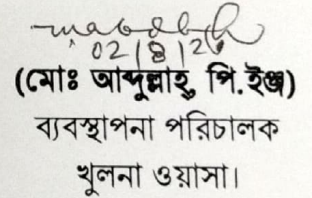 02/8/26
(মোঃ আব্দুল্লাহ্, পি.ইঞ্জ)
ব্যবস্থাপনা পরিচালক
খুলনা ওয়াসা।